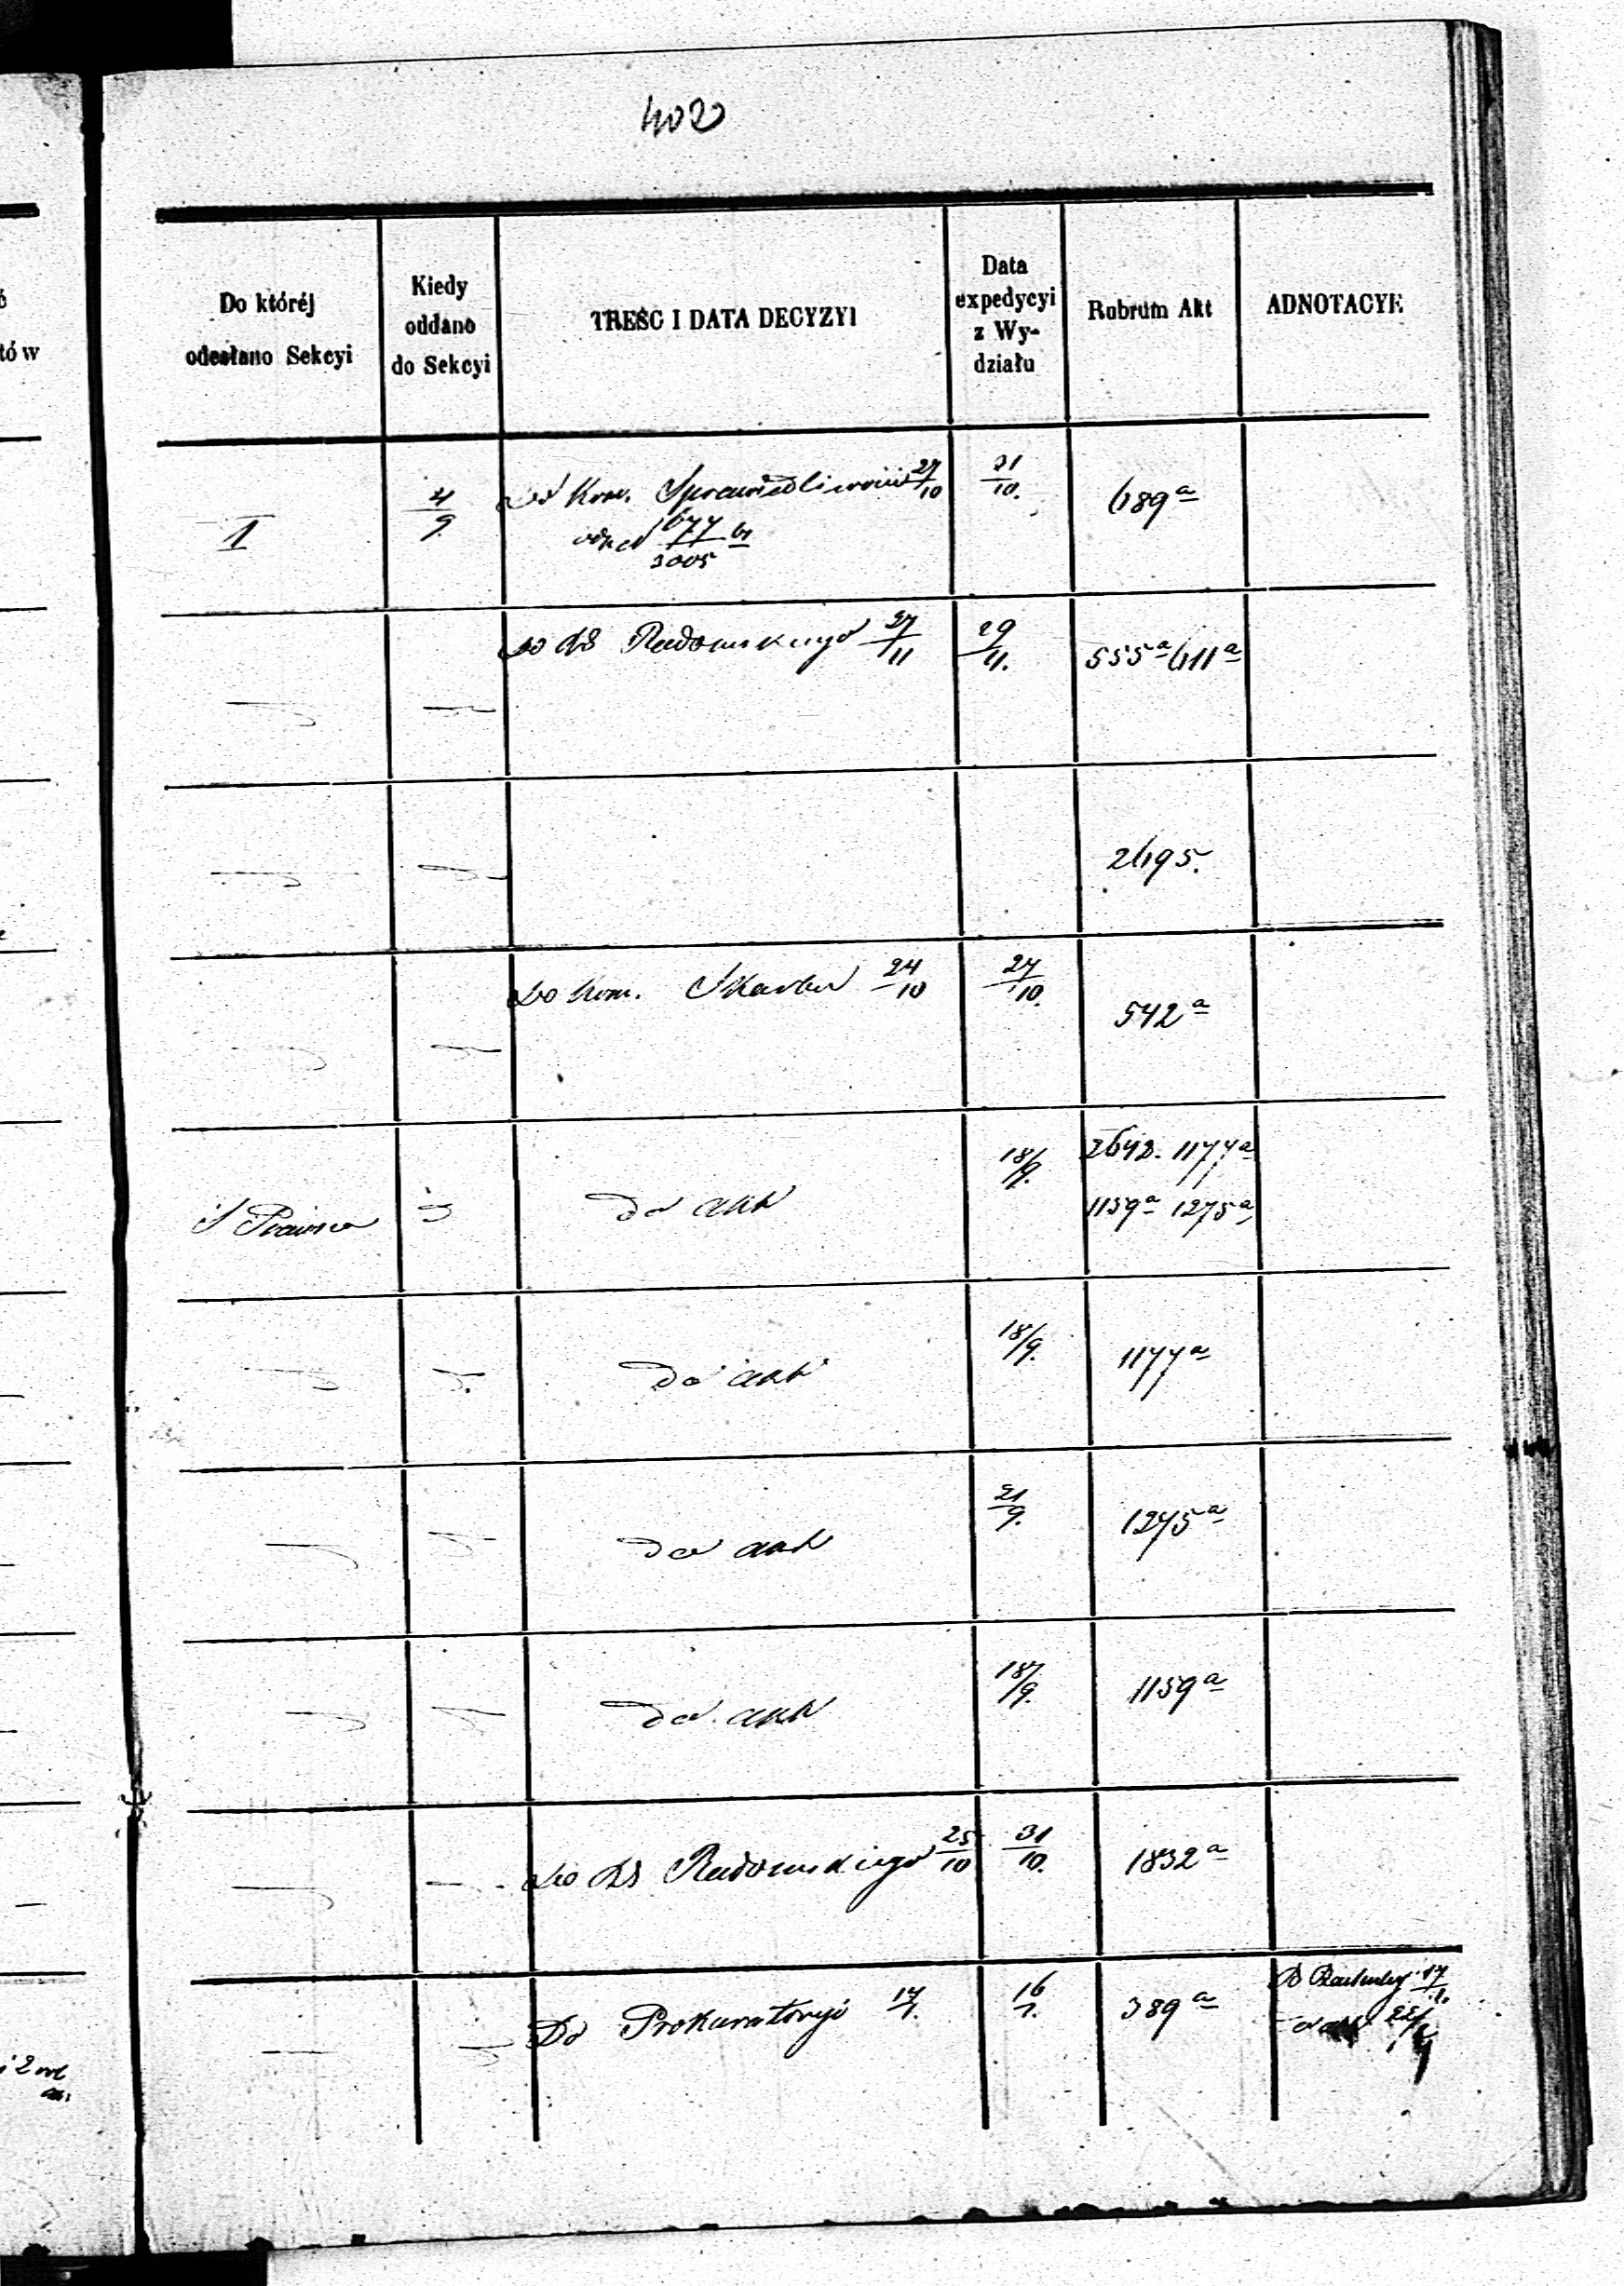 402
Do któréj odesłano Sekcyi
Kiedy oddano do Sekcyi
TREŚC I DATA DECYZYI
Data expedycyi z Wy- działu
Rubrum Akt
ADNOTACYE
I 4/9 Do Kom. Sprawiedliwości 27/10 31/10. 689 a
677/3005
Do RG Radomskiego 27/11 29/11. 555 a 611 a
2695.
Do Kom. Skarbu 24/10 27/10. 542 a
18/9. 2642. 1177 a
S Prawna Do akt 1159 a 1275 a
Do akt 18/9. 1177 a
Do akt 21/9. 1275 a
Do akt 18/9. 1159 a
Do RG Radomskiego 25/10 31/10. 1832 a
Do Prokuratoryi 17/1. 16/1. 389 a